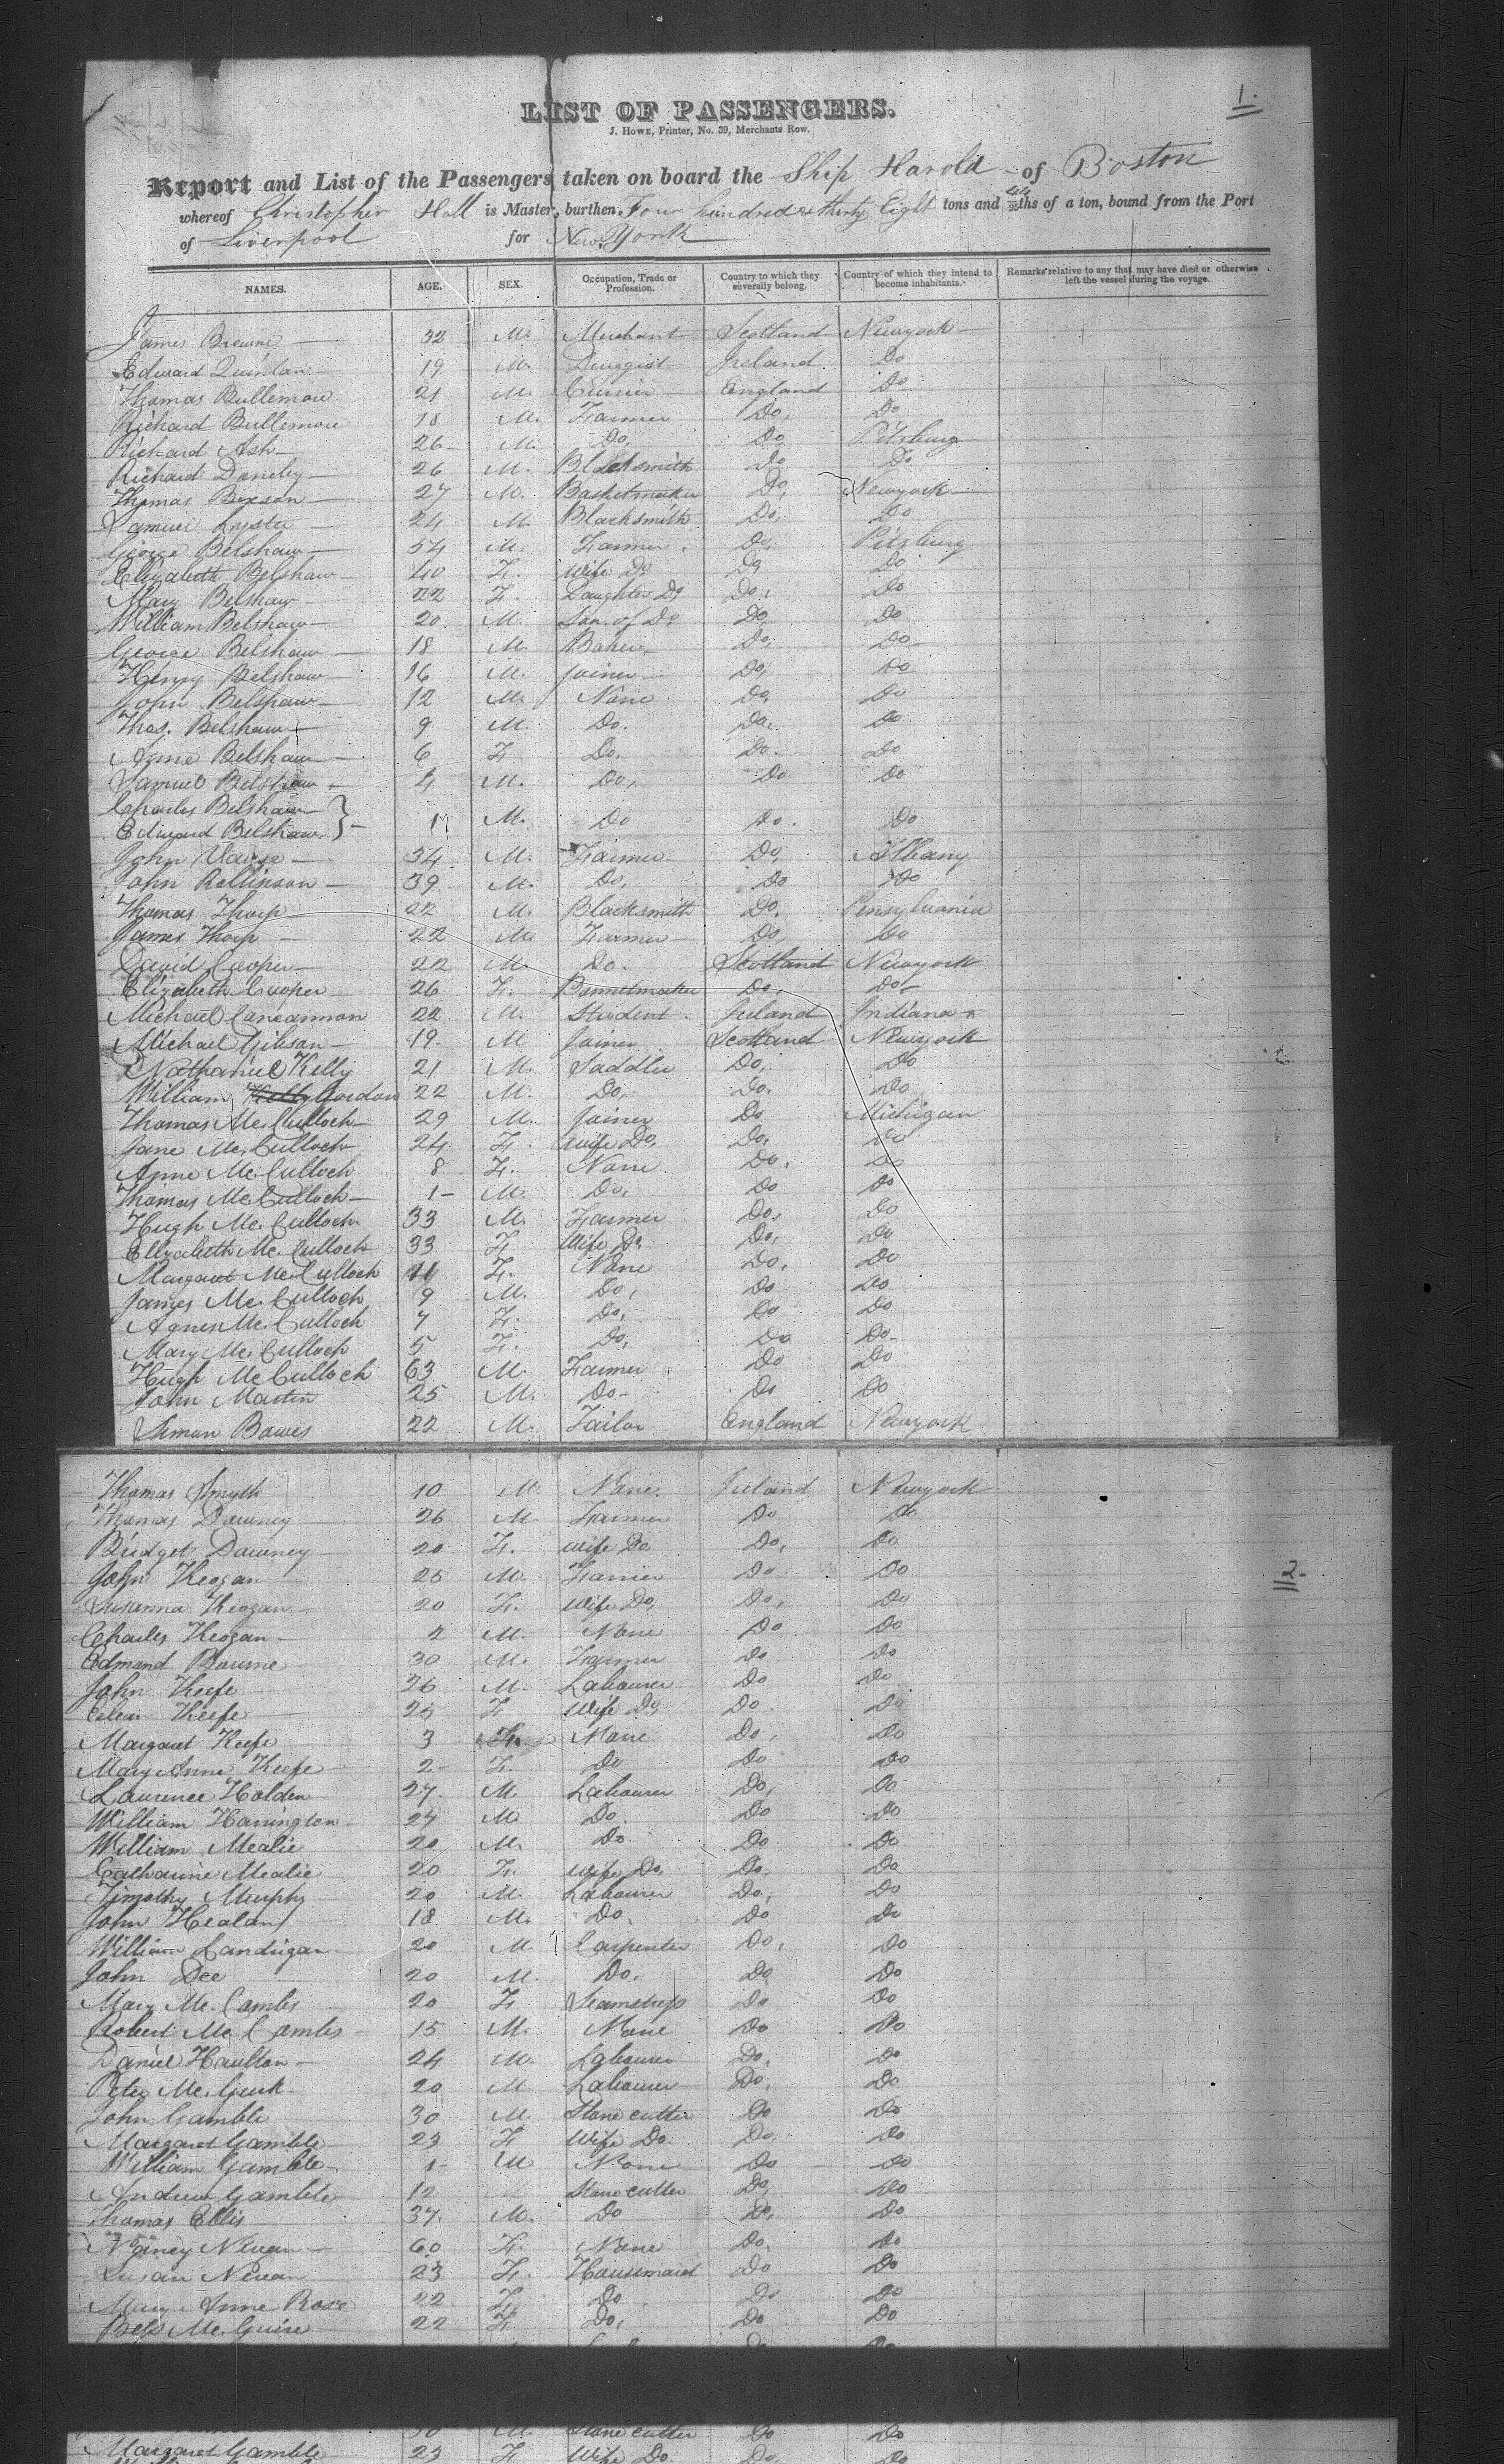 1.
LIST OF PASSENGERS.
J. Howe, Printer, No. 39, Merchants Row.
Report and List of the Passengers taken on board the Ship Harold of Boston
whereof Christopher Hall is Master, burthen Four hundred & thirty Eight tons and 44/95ths of a ton, bound from the Port
of Liverpool for New York
NAMES. AGE. SEX. Occupation, Trade or Profession. Country to which they severally belong. Country of which they intend to become inhabitants. Remarks relative to any that may have died or otherwise left the vessel during the voyage.
James Browne 32 M. Merchant Scotland Newyork
Edward Quinlan 19 M. Druggist Ireland Do
Thomas Bullemore 21 M. Currier England Do
Richard Bullemore 18 M. Farmer Do, Do
Richard Ash 26 M. Do, Do Pitsburg
Richard 26 M. Blacksmith Do Do
Thomas 27 M. Basketmaker Do, Newyork
Samuel Lyster 24 M. Blacksmith Do, Do
George Belshaw 54 M. Farmer Do, Pitsburg
Elizabeth Belshaw 40 F. Wife Do Do Do
Mary Belshaw 22 F. Daughter Do Do, Do
William Belshaw 20 M. Son of Do Do, Do
George Belshaw 18 M. Baker Do, Do
Henry Belshaw 16 M. Joiner Do, Do
John Belshaw 12 M. None Do, Do
Thos. Belshaw 9 M. Do. Do. Do
Anne Belshaw 6 F Do. Do. Do
Samuel Belshaw 4 M. Do, Do Do
Charles Belshaw
Edward Belshaw } M. Do Do. Do
John 34 M. Farmer Do, Albany
John Rollinson 39 M. Do, Do Do
Thomas Thorp 22 M. Blacksmith Do. Pensylvania
James Thorp 22 M. Farmer Do, Do
David Cooper 22 M. Do. Scotland Newyork
Elizabeth Cooper 26 F. Bonnetmaker Do, Do
Michael Concannon 22 M. Student Ireland Indiana
Michael Gibson 19 M Joiner Scotland Newyork
Nathaniel Kelly 21 M. Saddler Do, Do
William Kelly Gordon 22 M. Do, Do. Do
Thomas Mc.Culloch 29 M. Joiner Do Michigan
Jane Mc.Culloch 24 F. Wife Do, Do, Do
Anne Mc.Culloch 8 F. None Do, Do
Thomas Mc.Culloch 1 M. Do, Do Do
Hugh Mc.Culloch 33 M. Farmer Do, Do
Elizabeth Mc.Culloch 33 F Wife Do, Do, Do
Margaret Mc.Culloch 11 F. None Do, Do
James Mc.Culloch 9 M. Do, Do Do
Agnes Mc.Culloch 7 F. Do, Do Do
Mary Mc.Culloch 5 F. Do, Do Do
Hugh Mc.Culloch 63 M. Farmer Do Do
John Martin 25 M. Do Do Do
Simon Bowes 22 M. Tailor England Newyork
Thomas Smyth 10 M. None Ireland Newyork
Thomas Downey 26 M Farmer Do Do
Bridget Downey 20 F. Wife Do Do, Do
John Keogan 25 M. Farrier Do Do
Susanna Keogan 20 F. Wife Do, Do, Do
Charles Keogan 2 M. None Do Do
Edmond Bourne 30 M. Farmer Do Do
John Keefe 26 M. Labourer Do Do
Ellen Keefe 25 F Wife Do, Do Do
Margaret Keefe 3 F. None Do, Do
Mary Anne Keefe 2 F. Do Do Do
Laurence Holden 27. M. Labourer Do, Do
William Harrington 24 M. Do. Do Do
William Mealie 20 M. Do Do Do
Catharine Mealie 20 F. Wife Do, Do, Do
Timothy Murphy 20 M. Labourer Do, Do
John Healan 18 M. Do, Do Do
William Landrigan 20 M Carpenter Do, Do
John Dee 20 M. Do, Do Do
Mary Mc.Combs 20 F Seamstress Do Do
Robert Mc.Combs 15 M. None Do Do
Daniel Haulton 24 M. Labourer Do, Do
Peter Mc.Gurk 20 M Labourer Do, Do
2
John Gamble 30 M. Stone cutter Do Do
Margaret Gamble 23 F Wife Do. Do. Do
William Gamble 1 M None Do Do
Andrew Gamble 12 Stone cutter Do, Do
Thomas Ellis 37. M. Do Do, Do
Nancy 60 F. None Do, Do
Susan 23 F. Housemaid Do Do
Mary Anne Rose 22 F Do Do Do
Bess Mc.Guire 22 F Do, Do Do
30 M. Stone cutter Do Do
Margaret Gamble 23 F Wife Do. Do. Do